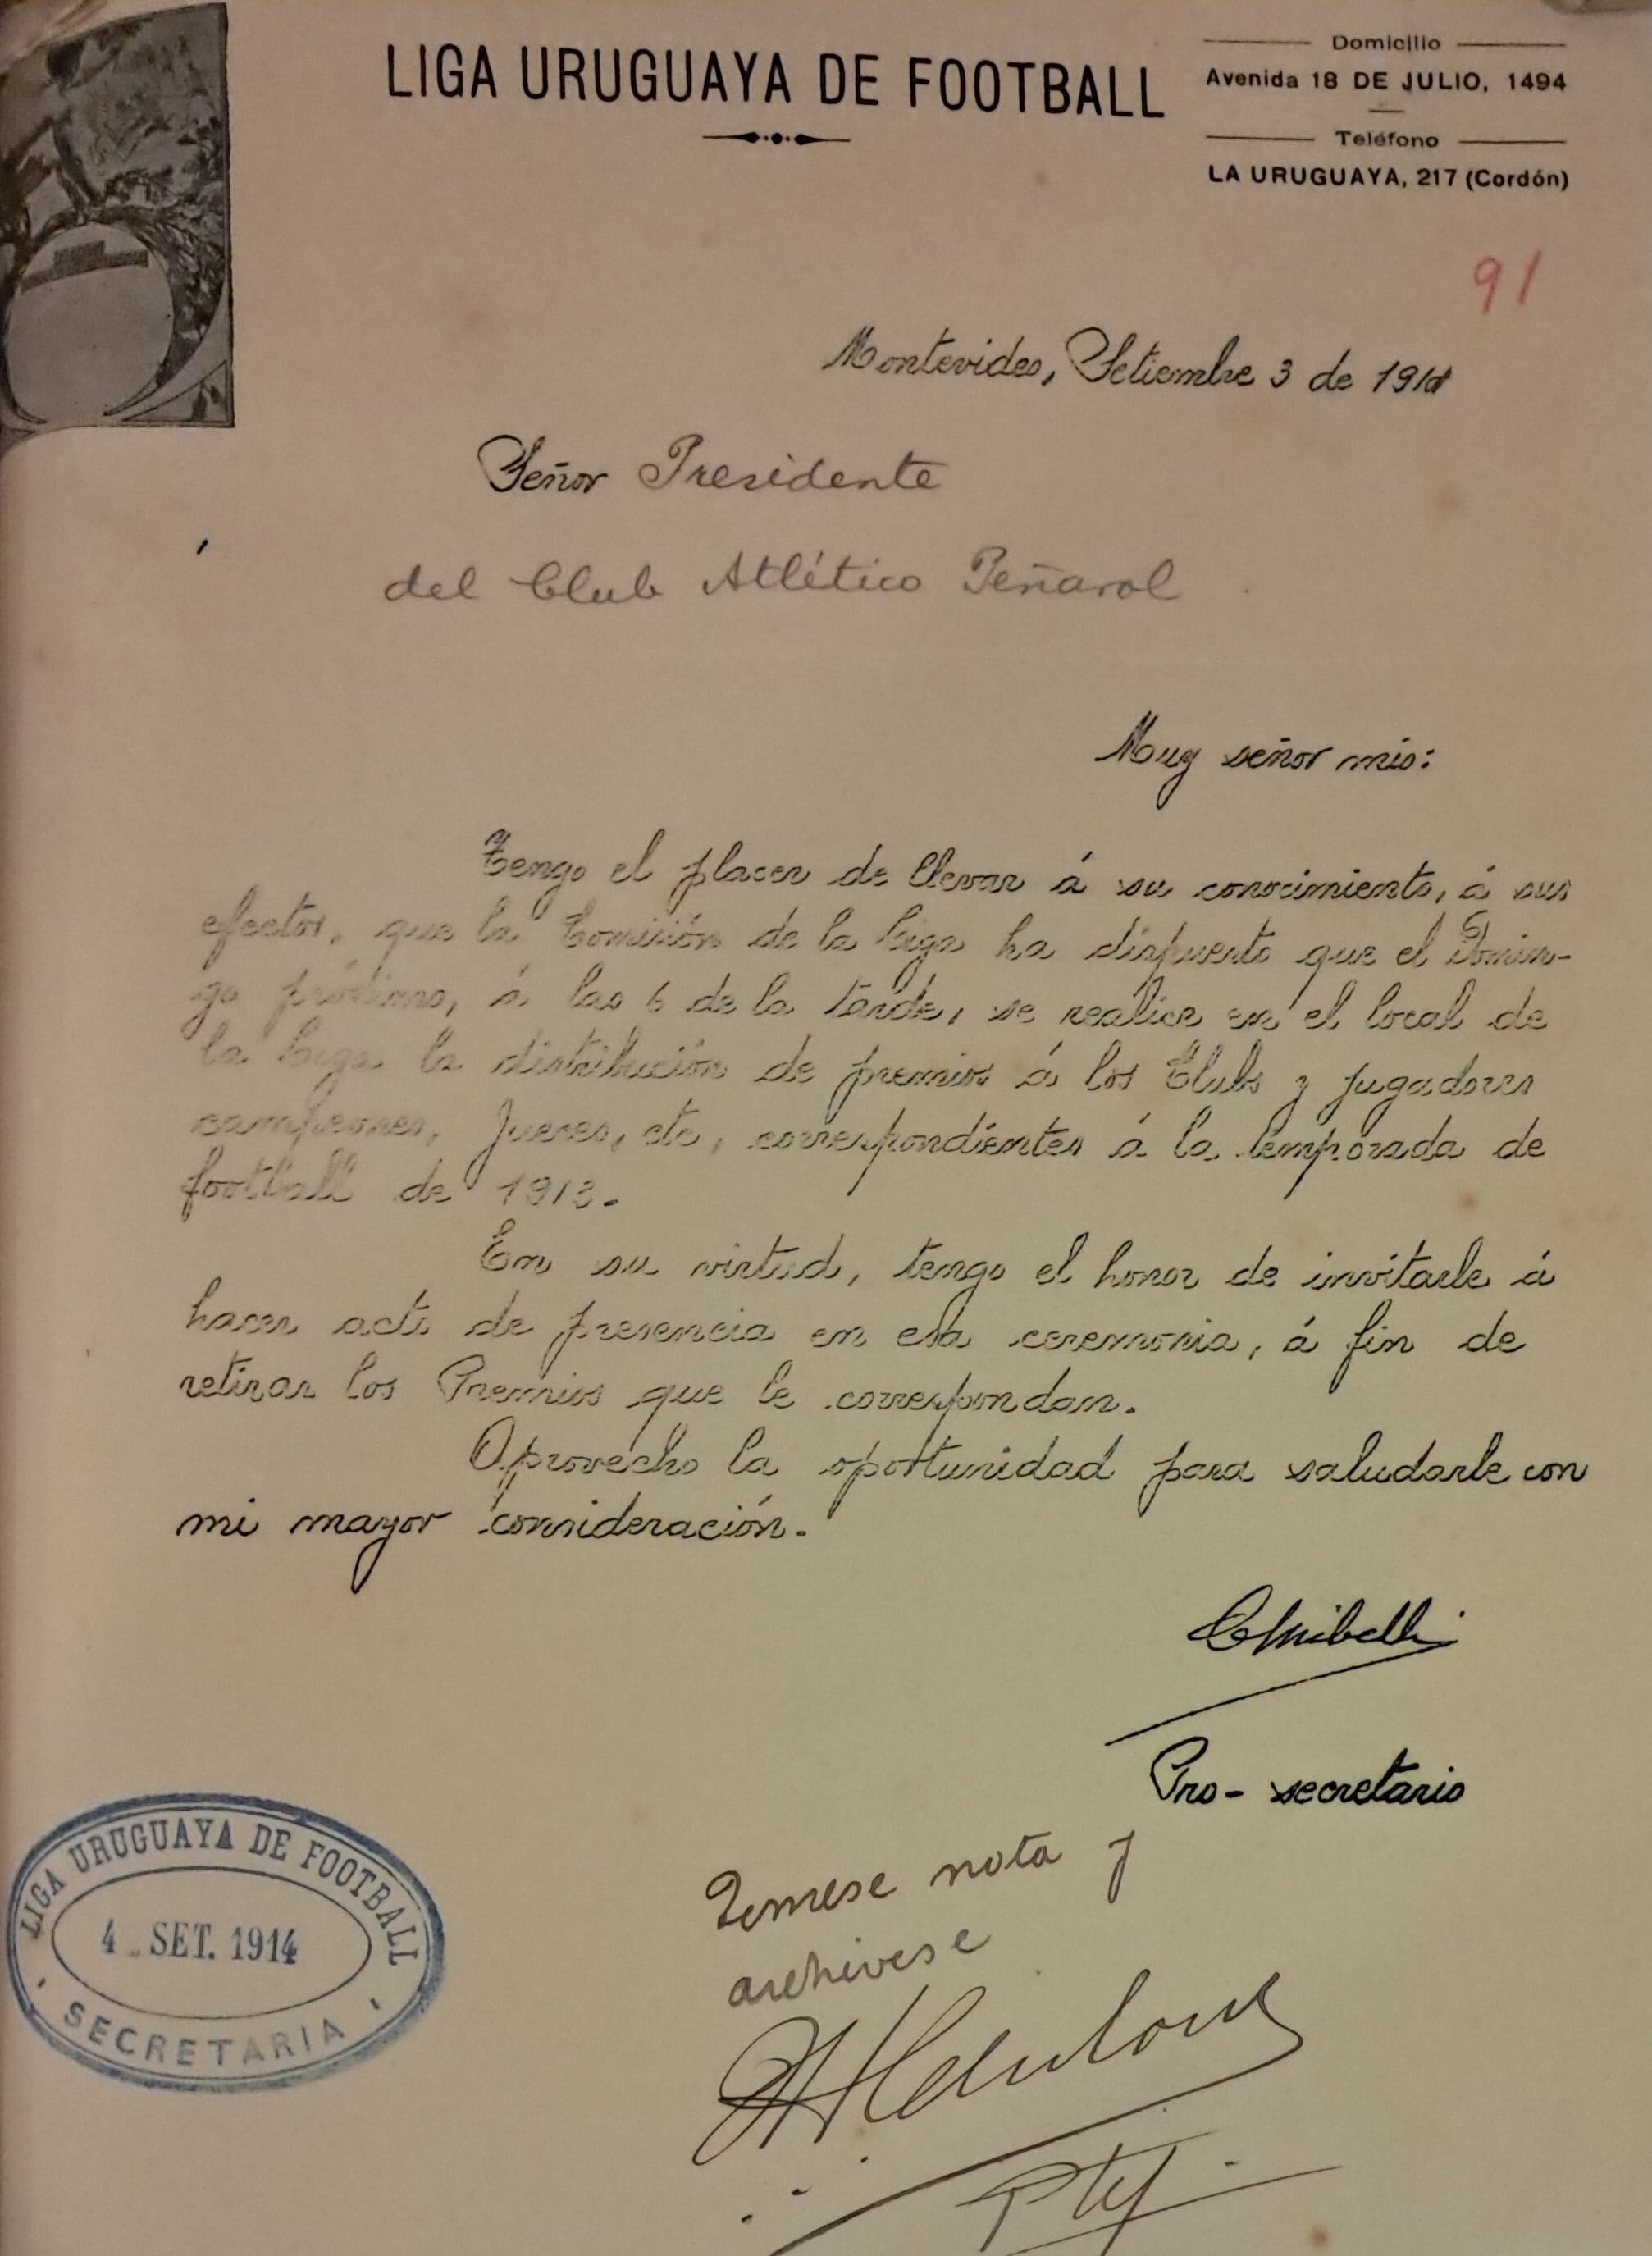 LIGA URUGUAYA DE FOOTBALL
Domicilio
Avenida 18 DE JULIO, 1494
Teléfono
LA URUGUAYA, 217 (Cordón)
91
Montevideo, Setiembre 3 de 1914
Señor Presidente
del Club Atlético Peñarol
Muy señor mio:
Tengo el placer de llevar á su conocimiento, á sus
efectos, que la Comisión de la Liga ha dispuesto que el Domin-
go próximo, á las 6 de la tarde, se realice en el local de
la Liga la distribución de premios á los Clubs y jugadores
campeones, Jueces, etc, correspondientes á la temporada de
football de 1913.
En su virtud, tengo el honor de invitarle á
hacer acto de presencia en esa ceremonia, á fin de
retirar los Premios que le correspondan.
Aprovecho la oportunidad para saludarle con
mi mayor consideración.
Pro-secretario
Tomese nota y
archivese
LIGA URUGUAYA DE FOOTBALL
4 SET. 1914
SECRETARIA